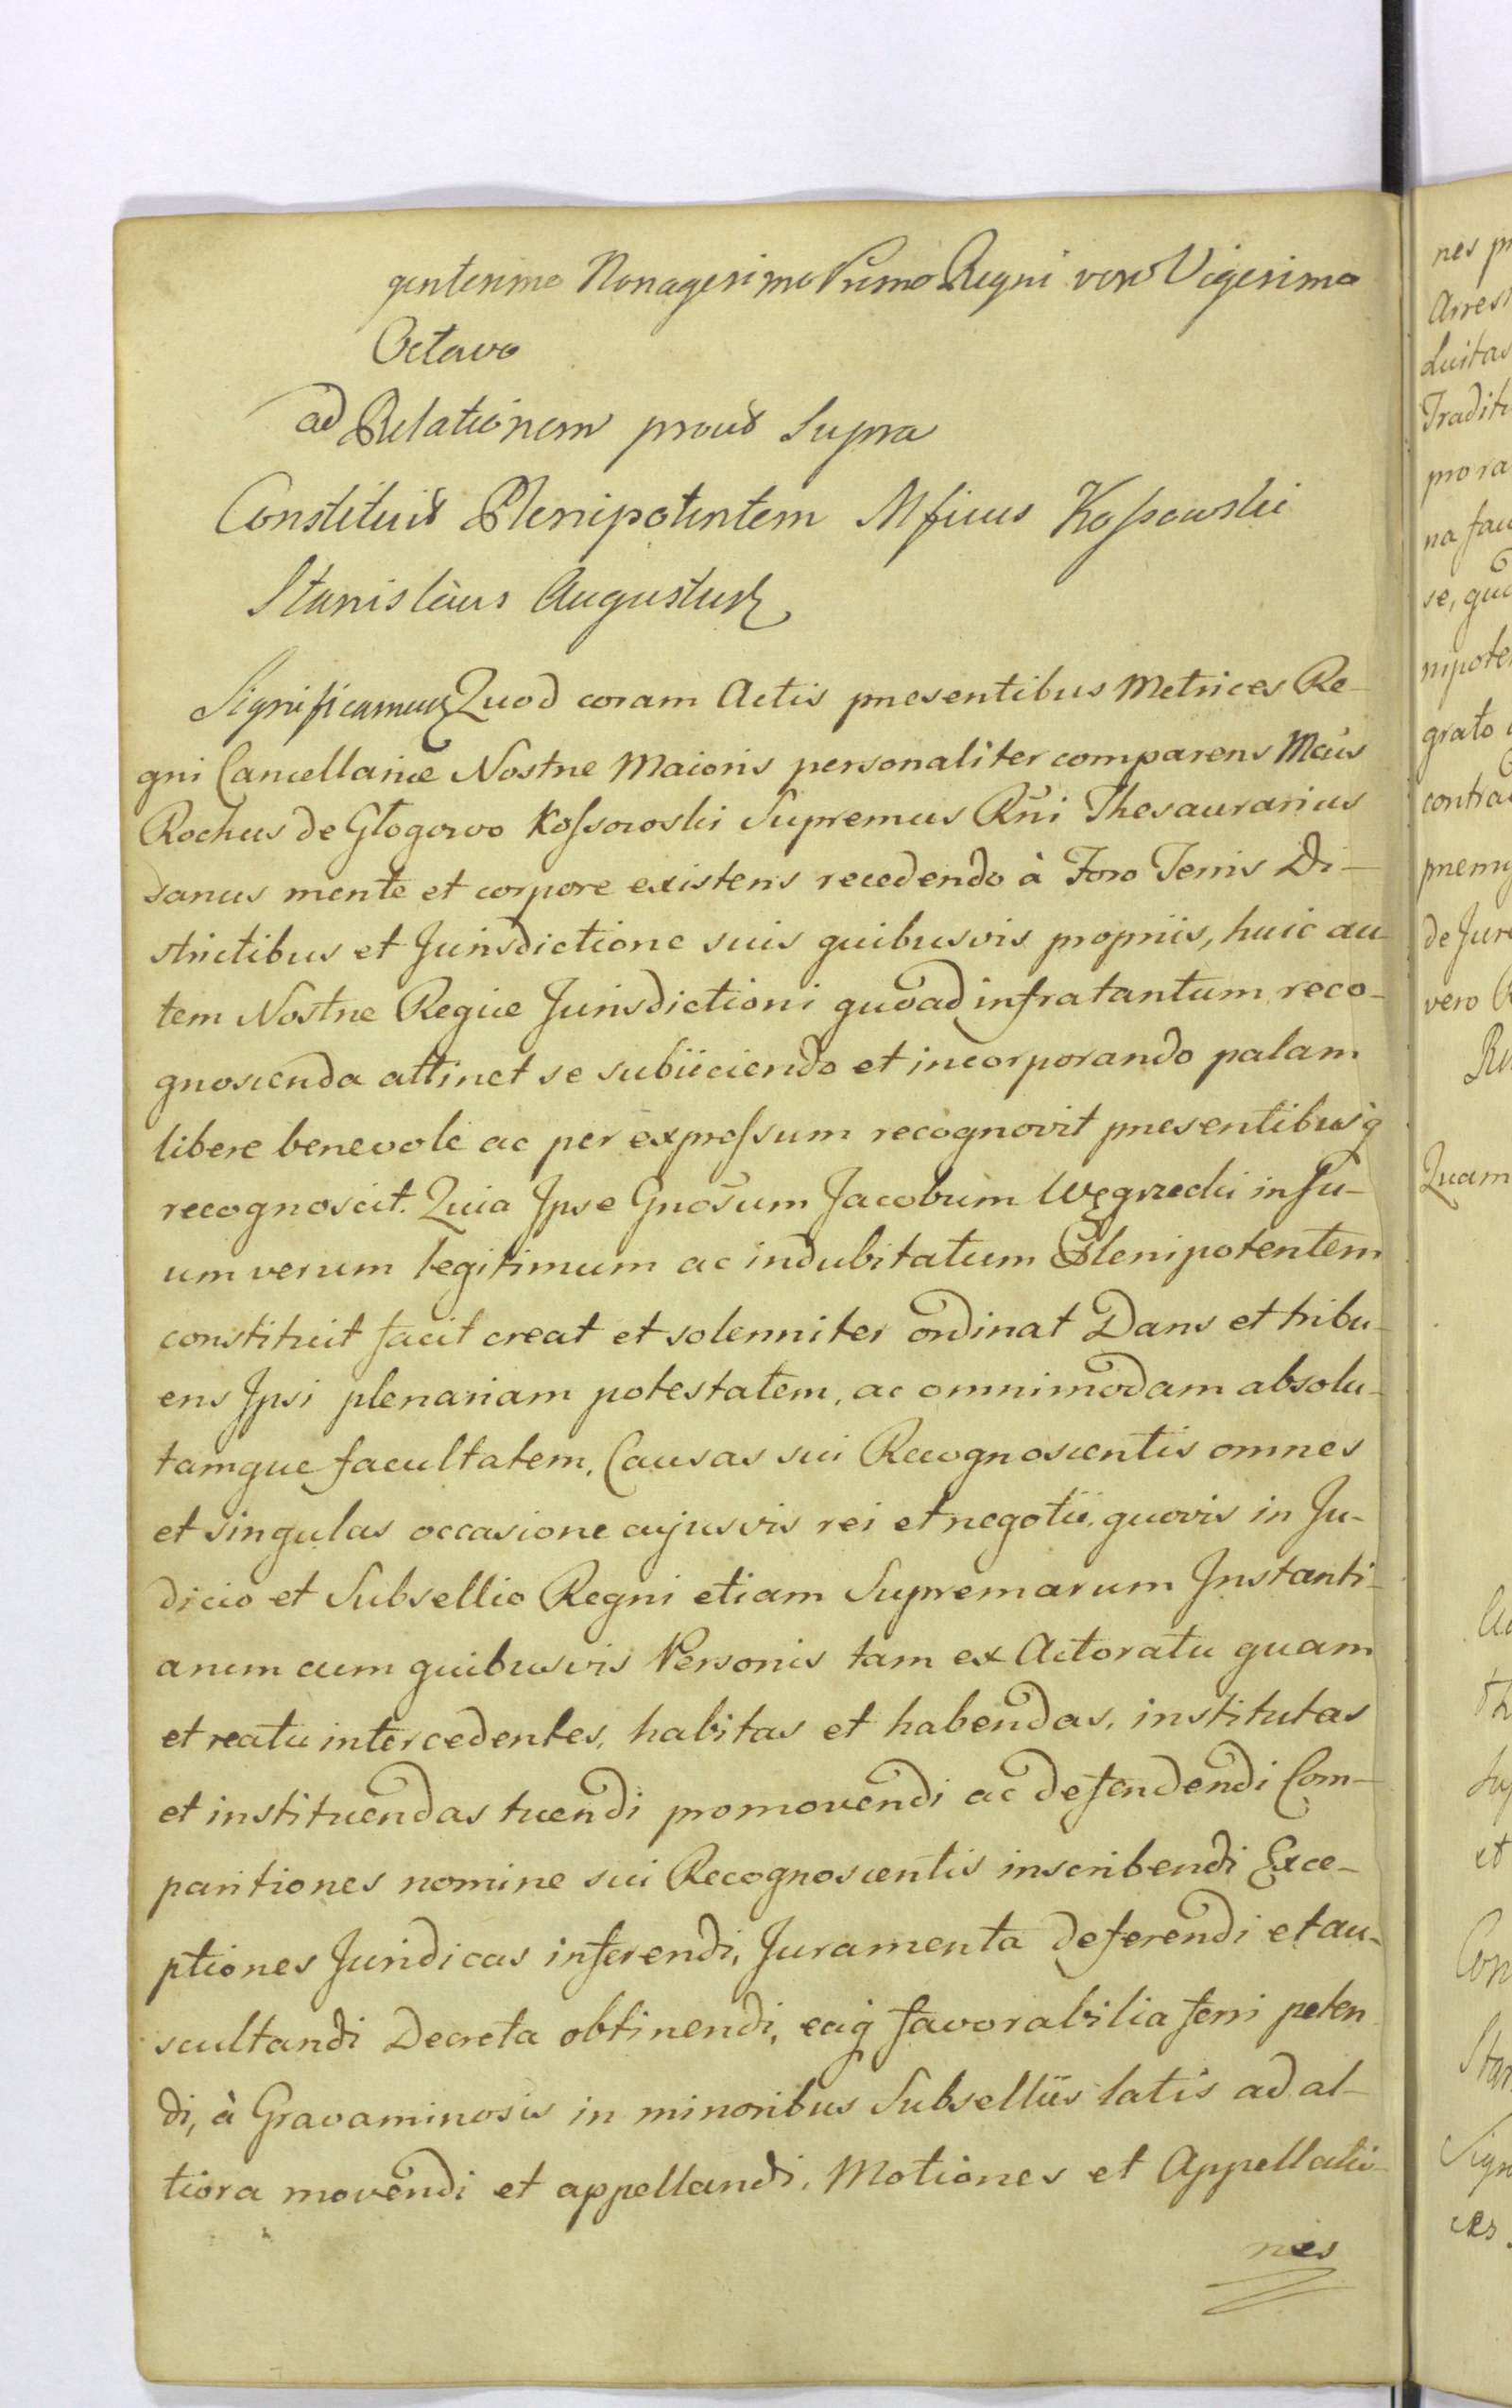 gentesimo Nonagesimo Primo Regni vero Vigesimo
Octavo
ad Relationem prout Supra
Constituit Plenipotentem Mficus Kossowski
Stanislaus Augustus
Significamus Quod coram Actis presentibus Metrices Re-
gni Cancellariæ Nostræ Maioris personaliter comparens Mcus
Rochus de Głogowo Kossowski Supremus Rni Thesaurarius
sanus mente et corpore existens recedendo à Foro Terris Di-
strictibus et Jurisdictione suis quibusvis propriis, huic au-
tem Nostræ Regiæ Jurisdictioni quoad infratantum reco-
gnoscenda attinet se subiiciendo et incorporando palam
libere benevole ac per expressum recognovit presentibusq
recognoscit. Quia Ipse Gnosum Jacobum Węgrzecki in Su-
um verum legitimum ac indubitatum Plenipotentem
constituit facit creat et solenniter ordinat Dans et tribu-
ens Ipsi plenariam potestatem, ac omnimodam absolu-
tamque facultatem, Causas sui Recognoscentis omnes
et singulas occasione cujusvis rei et negotii, quovis in Ju-
dicio et Subsellio Regni etiam Supremarum Instanti-
arum cum quibusvis Personis tam ex Actoratu quam
et reatu intercedentes, habitas et habendas, institutas
et instituendas tuendi promovendi ac defendendi Com-
paritiones nomine sui Recognoscentis inscribendi Exce-
ptiones Juridicas inferendi, Juramenta deferendi et au-
scultandi Decreta obtinendi, eaq favorabilia ferri peten
di, à Gravaminosis in minoribus Subselliis latis ad al-
tiora movendi et appellandi, Motiones et Appellatio-
nes
nes
Arrest
Quitas
Traditi
mora
na
se,
grato
contra
de Jure
vero
Quam
et
Con